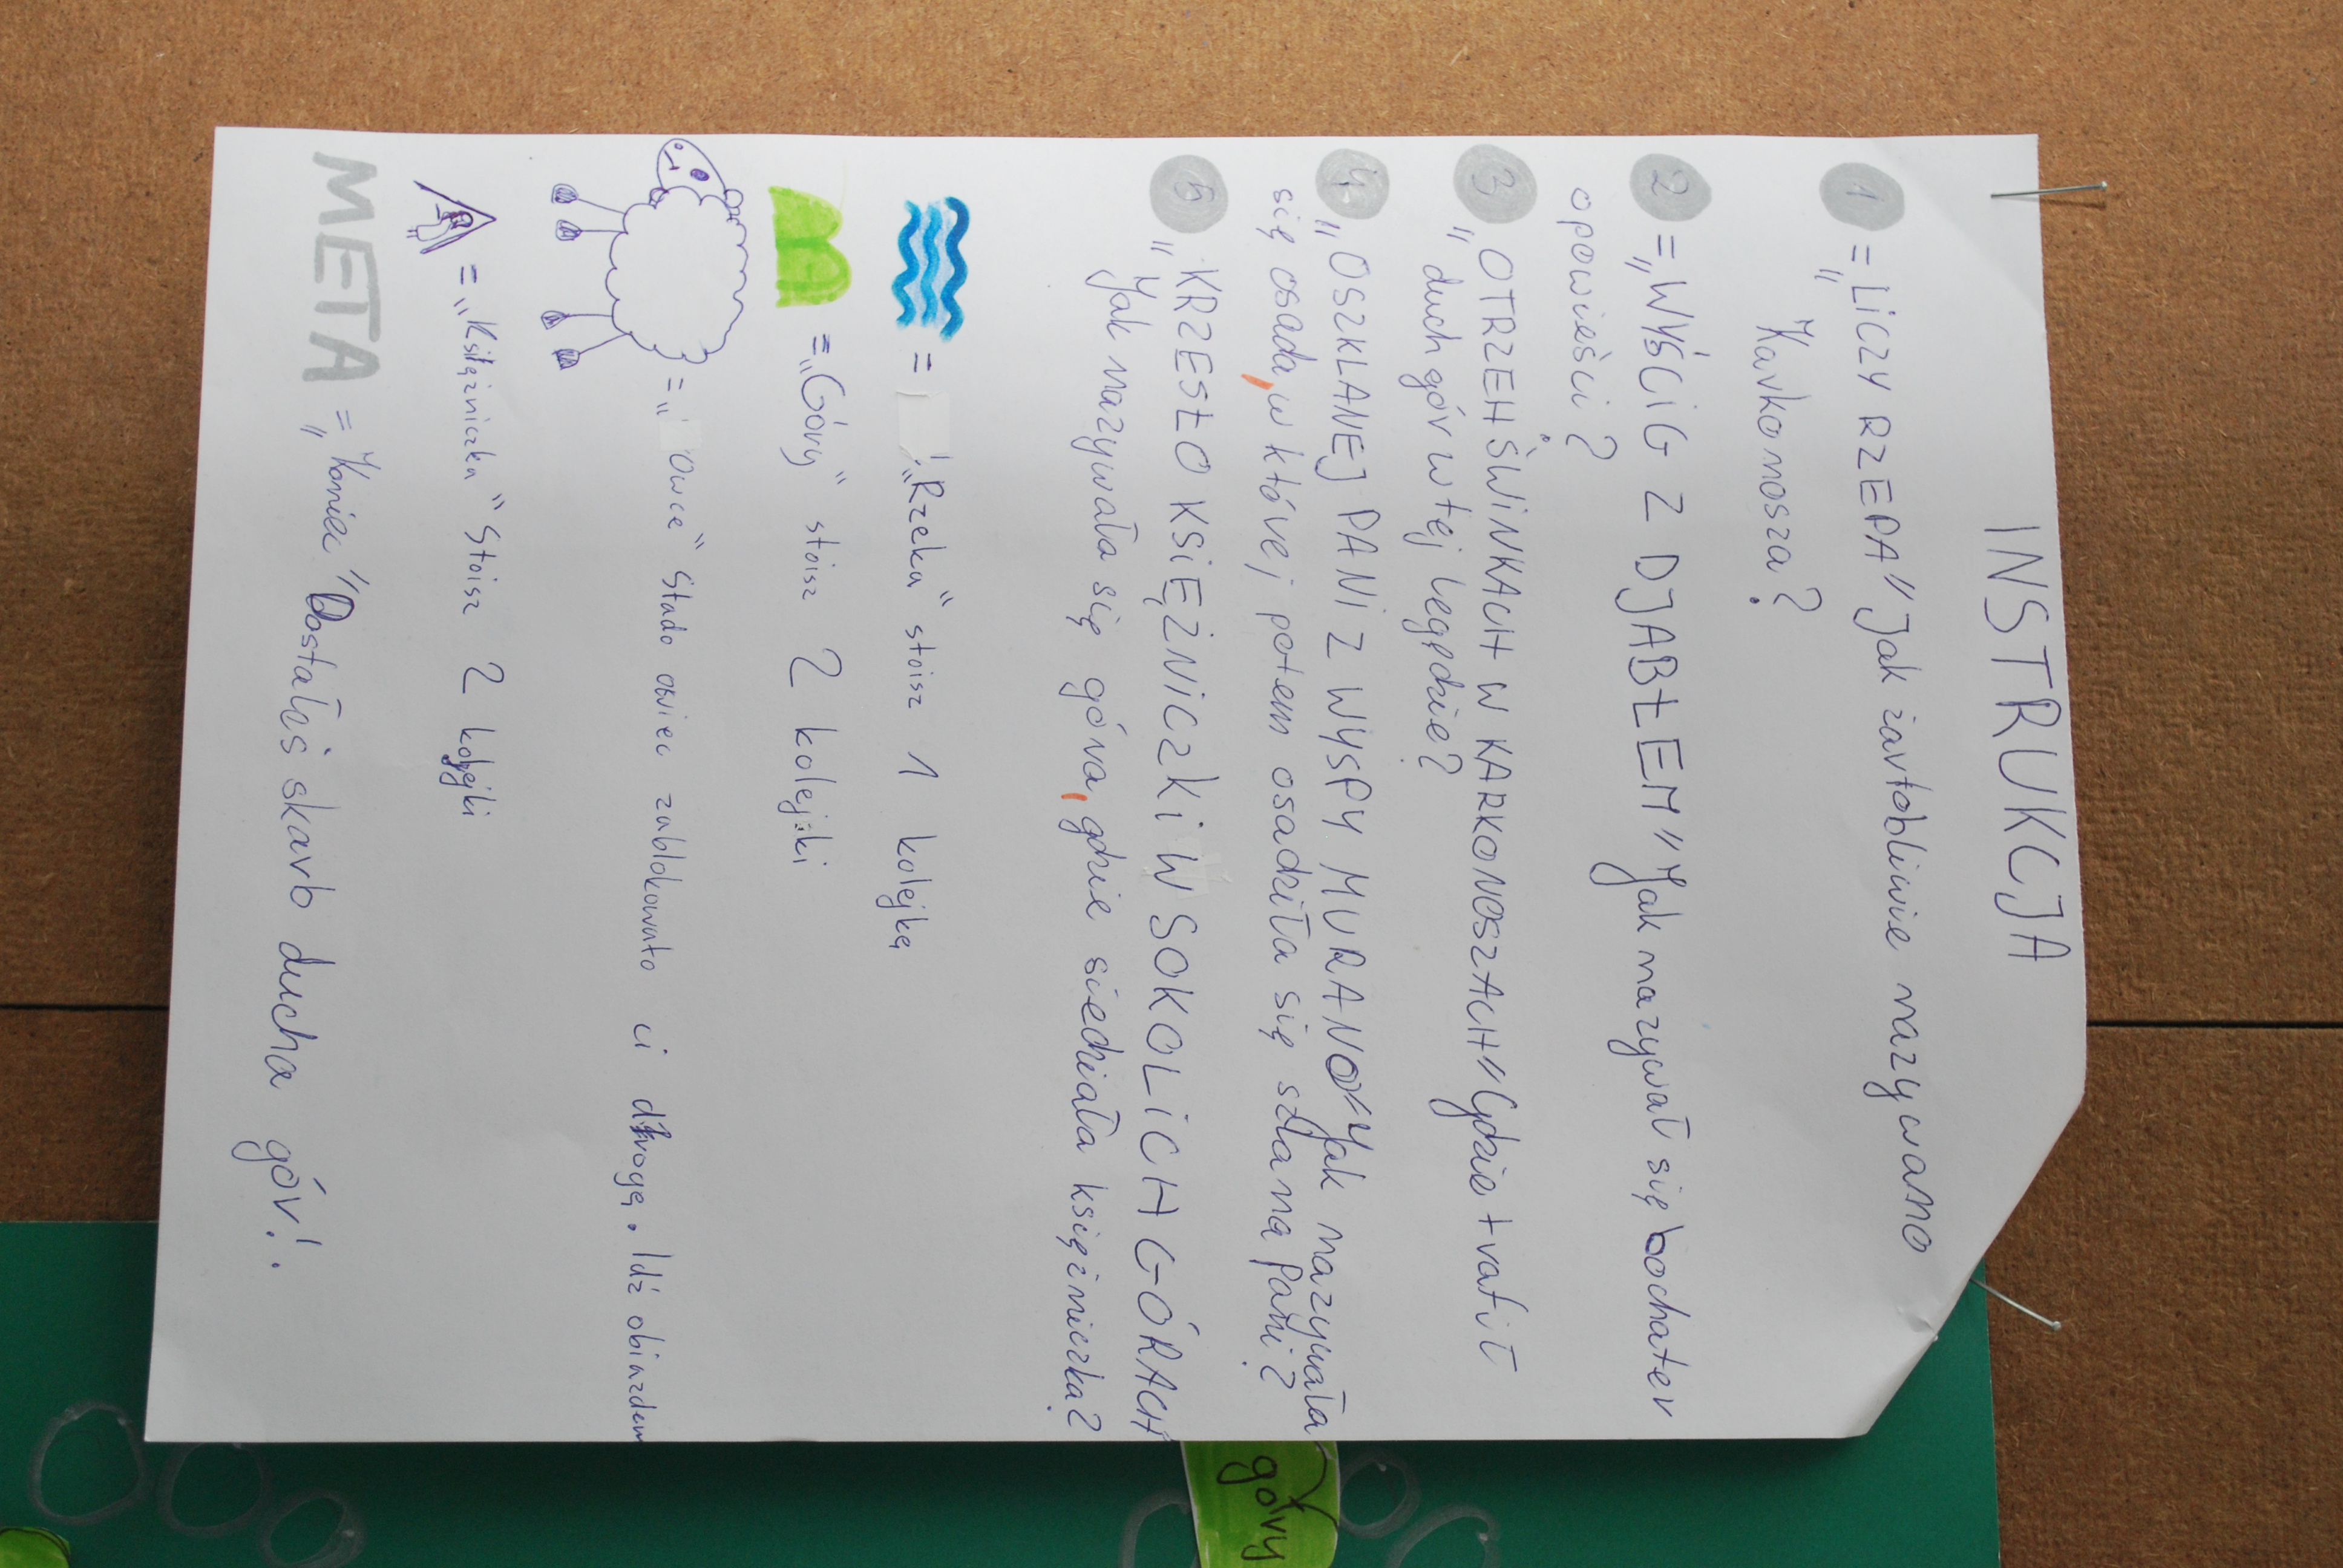 INSTRUKCJA
1 = „LICZY RZEPA" Jak żartobliwie nazywano
Karkonosza?
2 = „WYŚCIG Z DJABŁEM" Jak nazywał się bochater
opowieści?
3 „OTRZEH ŚWINKACH W KARKONOSZACH" Gdzie trafił
duch gór w tej legędzie?
4 „OSZKLANEJ PANI Z WYSPY MURANO" Jak nazywała
się osada, w której potem osadziła się szlana pani?
5 „KRZESŁO KSIĘŻNICZKI W SOKOLICH GÓRACH
Jak nazywała się góra, gdzie siedziała księżniczka?
= „Rzeka" stoisz 1 kolejką
= „Góry" stoisz 2 kolejki
= „Owce" Stado owiec zablokowało ci drogę. Idź objazdem
= „Księżniczka" Stoisz 2 kolejki
META = „Koniec" Dostałeś skarb ducha gór!
góry